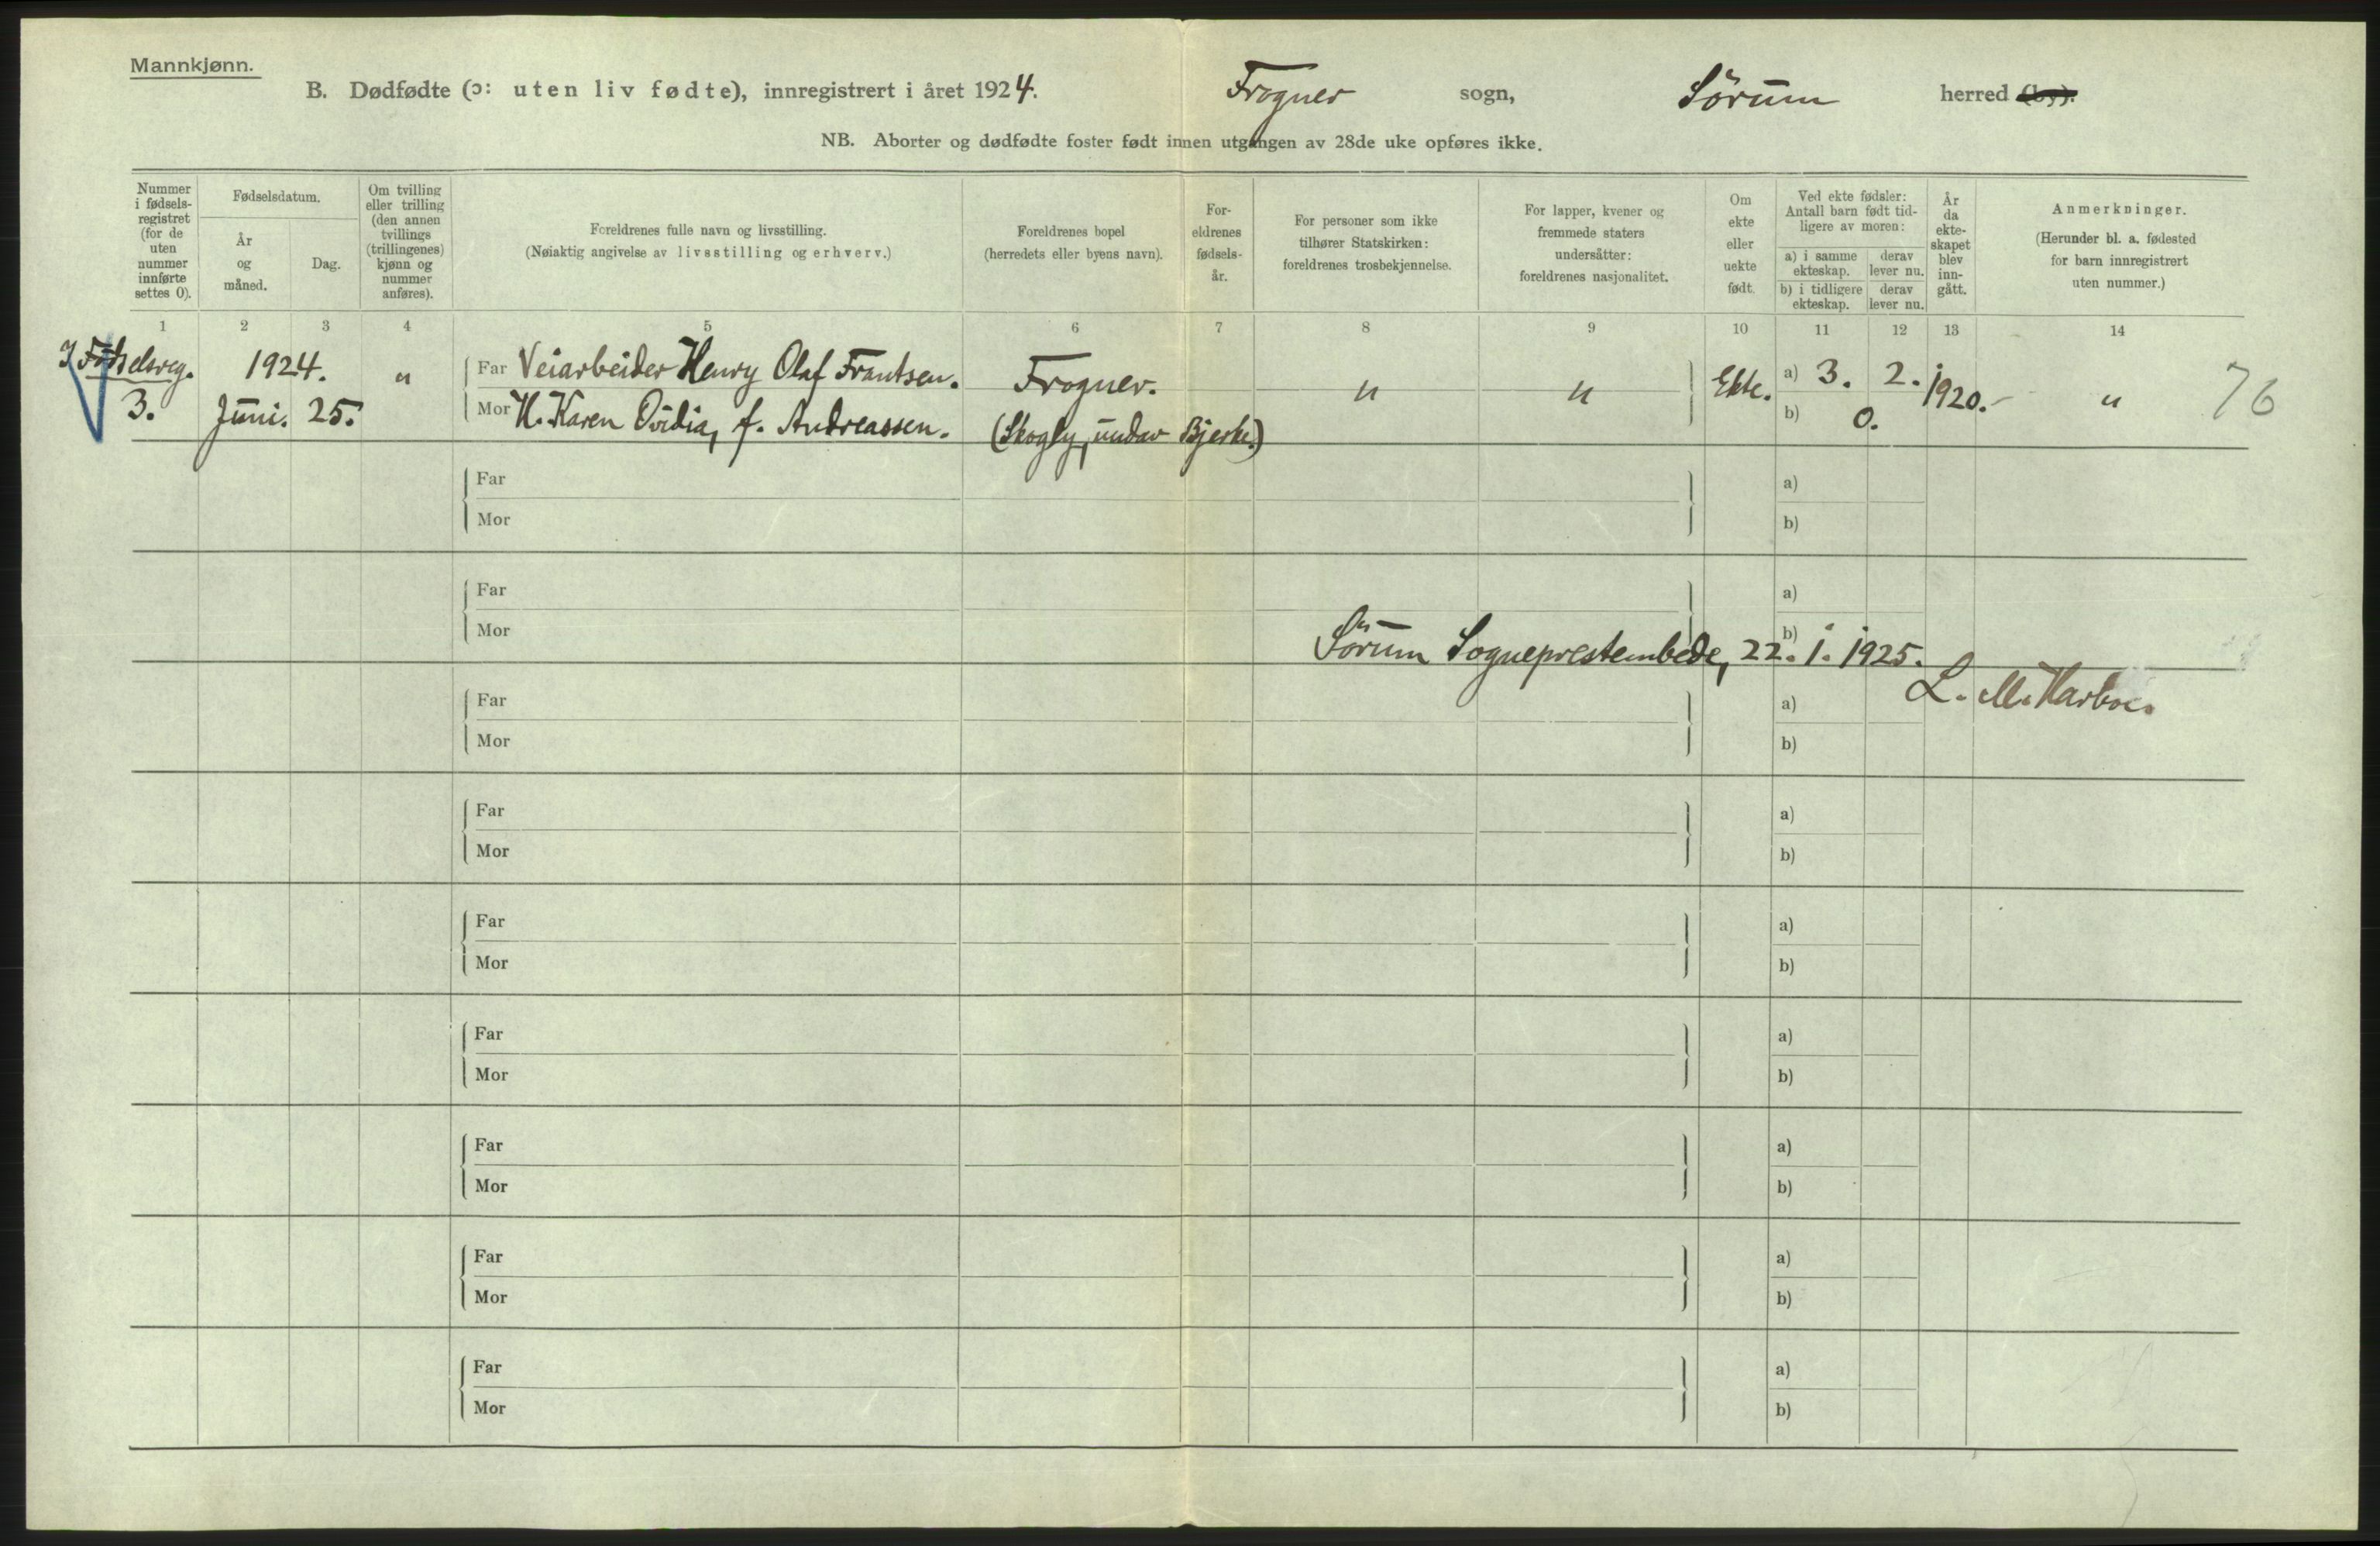 Mannkjønn.
B. Dødfødte (ɔ: uten liv fødte), innregistrert i året 1924. Frogner sogn, Sörum herred (by).
NB. Aborter og dødfødte foster født innen utgangen av 28de uke opføres ikke.
Nummer
i fødsels-
registret
(for de
uten
nummer
innførte
settes 0).
Fødselsdatum.
År
og
måned.
Dag.
Om tvilling
eller trilling
(den annen
tvillings
(trillingenes)
kjønn og
nummer
anføres).
Foreldrenes fulle navn og livsstilling.
(Nøiaktig angivelse av livsstilling og erhverv.)
Foreldrenes bopel
(herredets eller byens navn).
For-
eldrenes
fødsels-
år.
For personer som ikke
tilhører Statskirken:
foreldrenes trosbekjennelse.
For lapper, kvener og
fremmede staters
undersåtter:
foreldrenes nasjonalitet.
Om
ekte
eller
uekte
født.
Ved ekte fødsler:
Antall barn født tid-
ligere av moren:
a) i samme
ekteskap.
derav
lever nu.
b) i tidligere
ekteskap.
derav
lever nu.
År
da
ekte-
skapet
blev
inn-
gått.
Anmerkninger.
(Herunder bl. a. fødested
for barn innregistrert
uten nummer.)
1 2 3 4 5 6 7 8 9 10 11 12 13 14
I Fødselsreg. 1924. " Far Veiarbeider Henry Olaf Frantsen. Frogner. " " Ekte. a) 3. 2. 1920.- " 76
3. Juni. 25. Mor H. Karen Ovidia, f. Andreassen. (Skogly, undar Bjerke.) b) 0.
Far a)
Mor b)
Far a)
Mor b)
Sörum Sogneprestembede, 22. 1. 1925.
L. M. Harboe.
Far a)
Mor b)
Far a)
Mor b)
Far a)
Mor b)
Far a)
Mor b)
Far a)
Mor b)
Far a)
Mor b)
Far a)
Mor b)